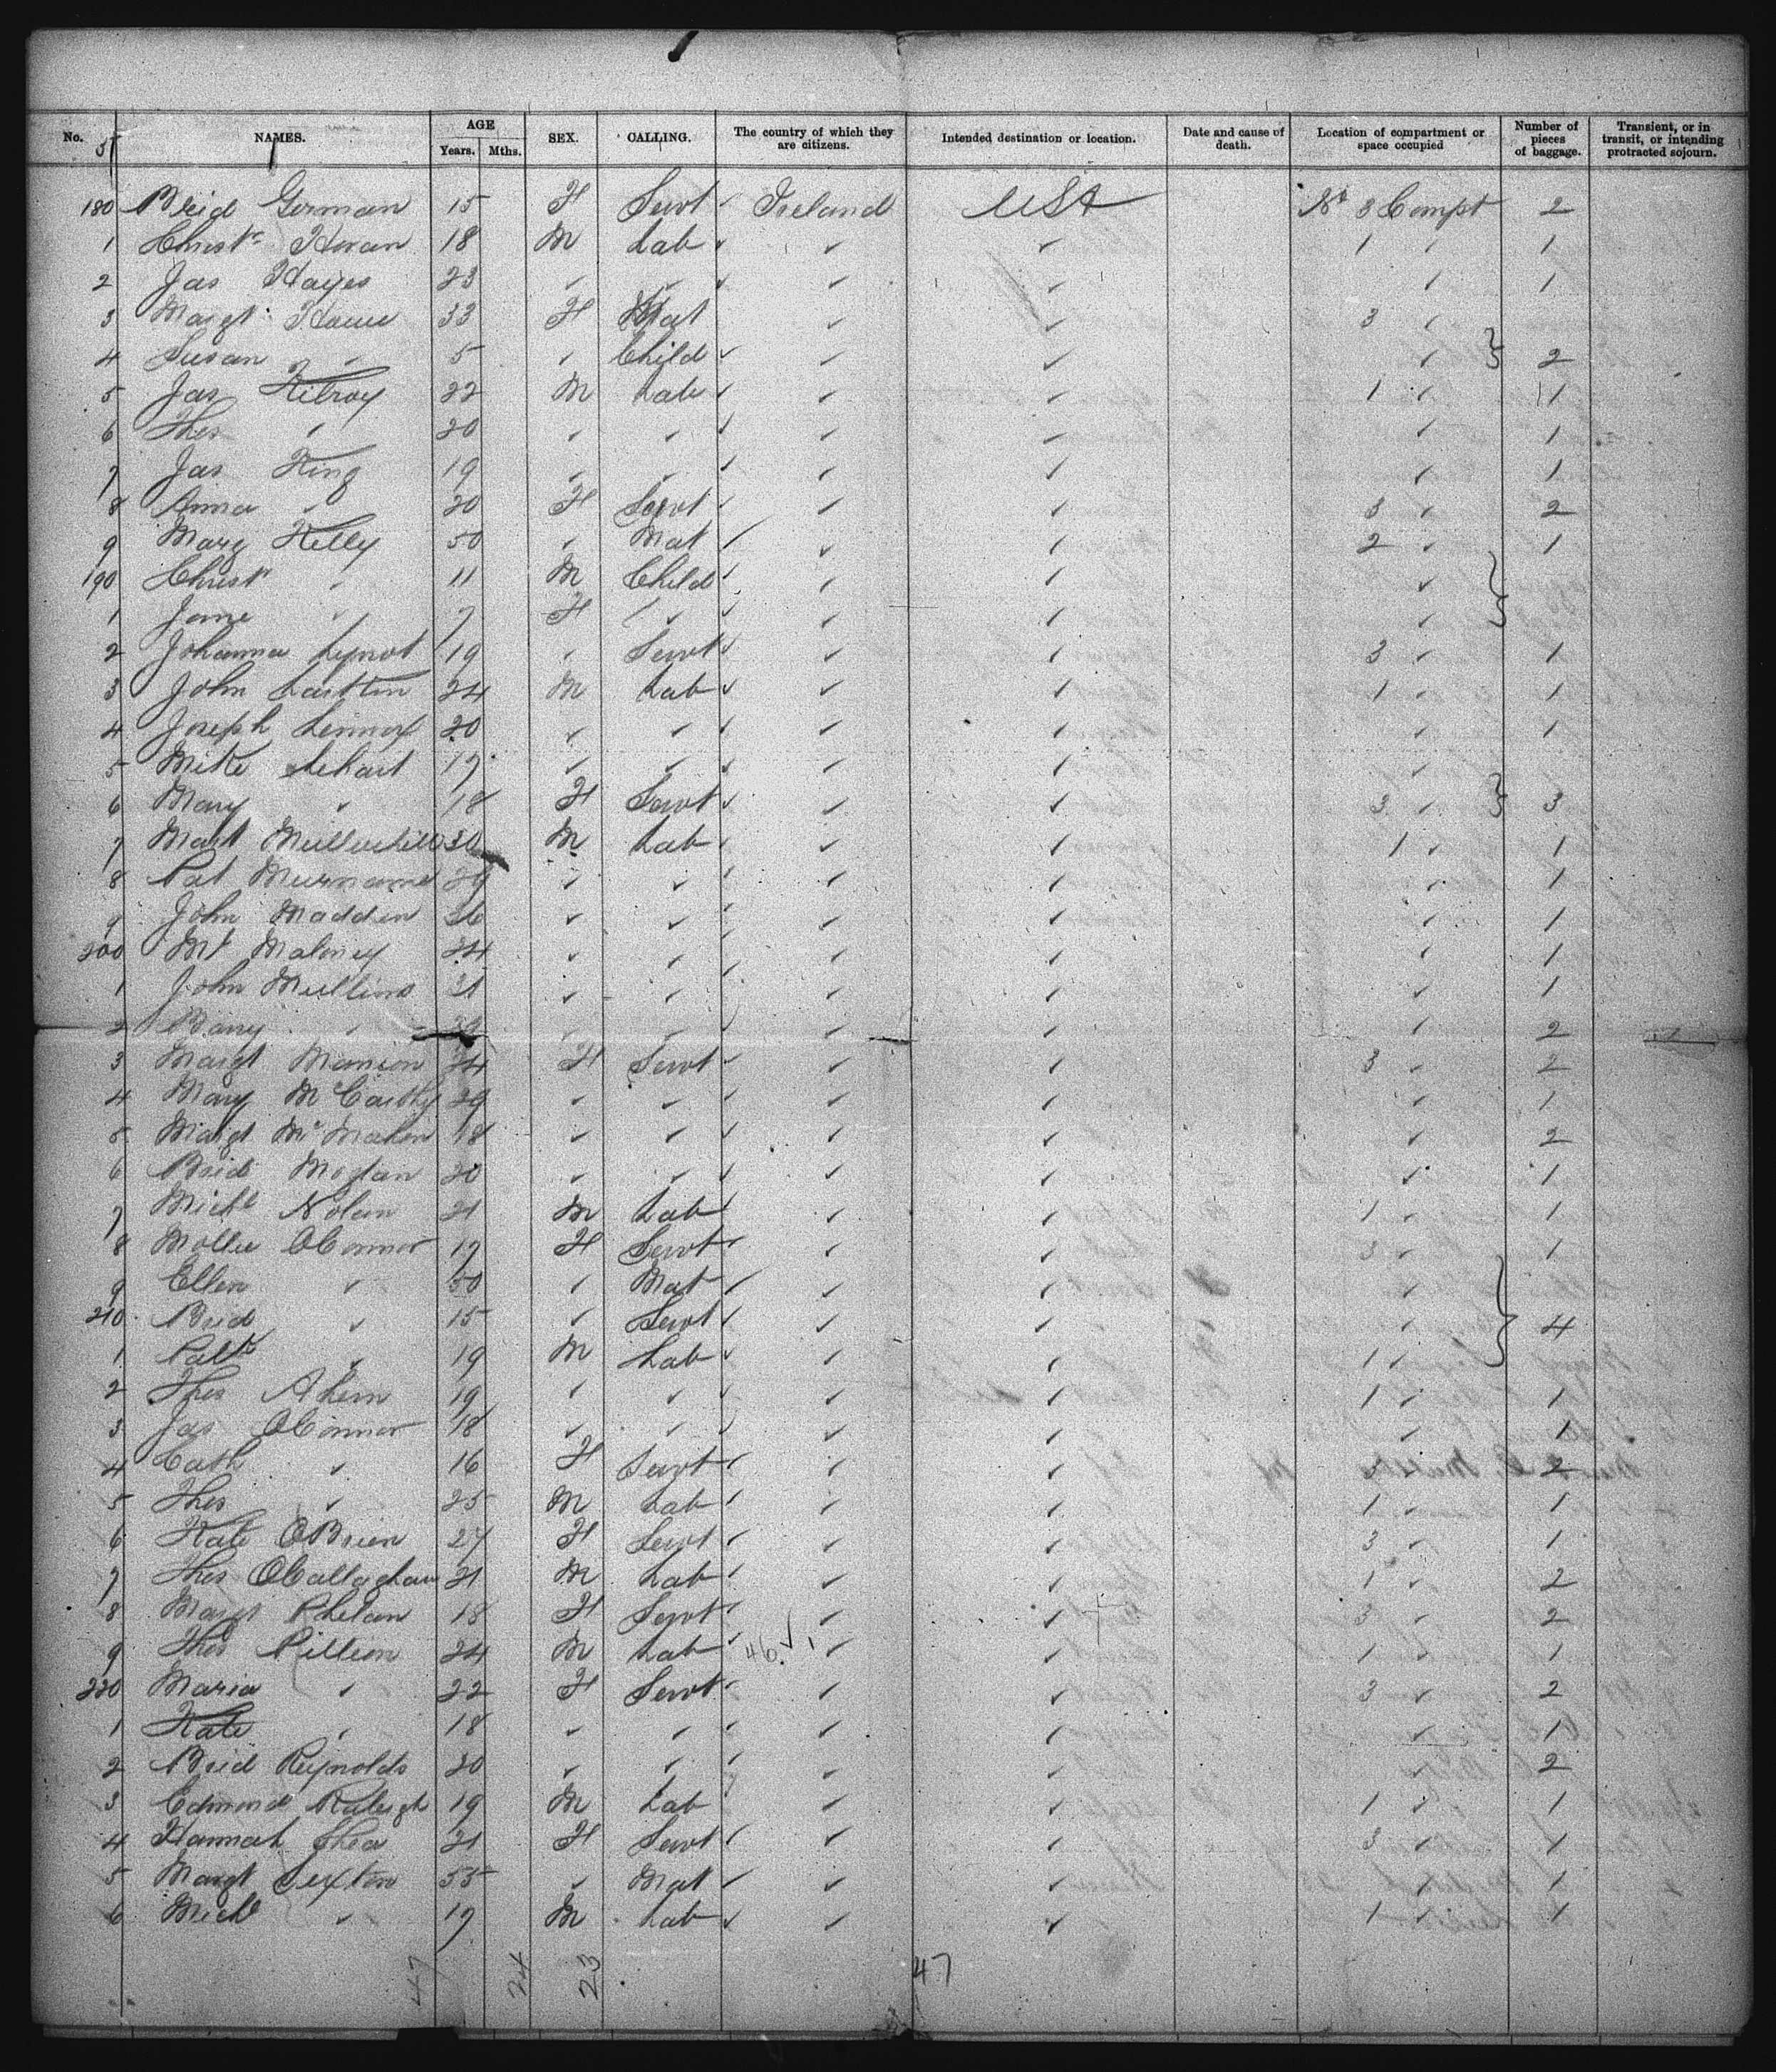 No. NAMES. AGE Years. Mths. SEX. CALLING. The country of which they are citizens. Intended destination or location. Date and cause of death. Location of compartment or space occupied Number of pieces of baggage. Transient, or in transit, or intending protracted sojourn.
180 Brid Gorman 15 F Servt Ireland USA No 3 Compt 2
1 Christr Horan 18 M Lab ✓ ✓ ✓ 1 ✓ 1
2 Jas Hayes 23 ✓ ✓ ✓ ✓ ✓ ✓ 1
3 Margt 33 F Mat ✓ ✓ 3 ✓
4 Susan ✓ 5 ✓ Child ✓ ✓ ✓ ✓ } 2
5 Jas Kilroy 22 M Lab ✓ ✓ ✓ 1 ✓ 1
6 Thos ✓ 20 ✓ ✓ ✓ ✓ ✓ ✓ 1
7 Jas King 19 ✓ ✓ ✓ ✓ ✓ ✓ 1
8 Anna ✓ 20 F Servt ✓ ✓ ✓ 3 ✓ 2
9 Mary Kelly 50 ✓ Mat ✓ ✓ ✓ 2 ✓ 1
190 Christr ✓ 11 M Child ✓ ✓ ✓ ✓ }
1 Jane ✓ 7 F ✓ ✓ ✓ ✓ ✓
2 Johanna Lynot 19 ✓ Servt ✓ ✓ ✓ 3 ✓ 1
3 John 24 M Lab ✓ ✓ ✓ 1 ✓ 1
4 Joseph Lennox 20 ✓ ✓ ✓ ✓ ✓ ✓ 1
5 Mike 17 ✓ ✓ ✓ ✓ ✓ ✓
6 Mary ✓ 18 F Servt ✓ ✓ ✓ 3 ✓ } 3
7 Mart 30 M Lab ✓ ✓ ✓ 1 ✓ 1
8 Pat 29 ✓ ✓ ✓ ✓ ✓ ✓ 1
9 John Madden 26 ✓ ✓ ✓ ✓ ✓ ✓ 1
200 Ml Maloney 24 ✓ ✓ ✓ ✓ ✓ ✓ 1
1 John Mullins 21 ✓ ✓ ✓ ✓ ✓ ✓ 1
2 ✓ ✓ ✓ ✓ ✓ ✓ ✓ 2
3 Margt Manion 24 F Servt ✓ ✓ ✓ 3 ✓ 2
4 Mary McCarthy 29 ✓ ✓ ✓ ✓ ✓ ✓ 1
5 Margt McMahon 18 ✓ ✓ ✓ ✓ ✓ ✓ 2
6 Brid 20 ✓ ✓ ✓ ✓ ✓ ✓ 1
7 Michl Nolan 21 M Lab ✓ ✓ ✓ 1 ✓ 1
8 Mollie OConnor 17 F Servt ✓ ✓ ✓ 3 ✓ 1
9 Ellen ✓ 50 ✓ Mat ✓ ✓ ✓ ✓
210 Brid ✓ 15 ✓ Servt ✓ ✓ ✓ ✓ } 4
1 Patk ✓ 19 M Lab ✓ ✓ ✓ 1 ✓
2 Thos Ahern 19 ✓ ✓ ✓ ✓ ✓ 1 ✓ 1
3 Jas OConnor 18 ✓ ✓ ✓ ✓ ✓ ✓ 1
4 Cath ✓ 16 F Servt ✓ ✓ ✓ 3 ✓ 2
5 Thos ✓ 25 M Lab ✓ ✓ ✓ 1 ✓ 1
6 Kate OBrien 27 F Servt ✓ ✓ ✓ 3 ✓ 1
7 Thos OCallaghan 21 M Lab ✓ ✓ ✓ 1 ✓ 2
8 Margt Phelan 18 F Servt ✓ ✓ ✓ 3 ✓ 2
9 Thos Pillion 24 M Lab ✓ 46 ✓ ✓ ✓ 1 ✓ 1
220 Maria ✓ 22 F Servt ✓ ✓ 3 ✓ 2
1 Kate ✓ 18 ✓ ✓ ✓ ✓ ✓ ✓ 1
2 Brid Reynolds 20 ✓ ✓ ✓ ✓ ✓ ✓ 2
3 Edmond Raleigh 19 M Lab ✓ ✓ 1 ✓ 1
4 Hannah Shea 21 F Servt ✓ ✓ ✓ 3 ✓ 1
5 Margt Sexton 55 ✓ Mat ✓ ✓ ✓ ✓ 1
6 Michl ✓ 17 M Lab ✓ ✓ ✓ 1 ✓ 1
47 24 23 47